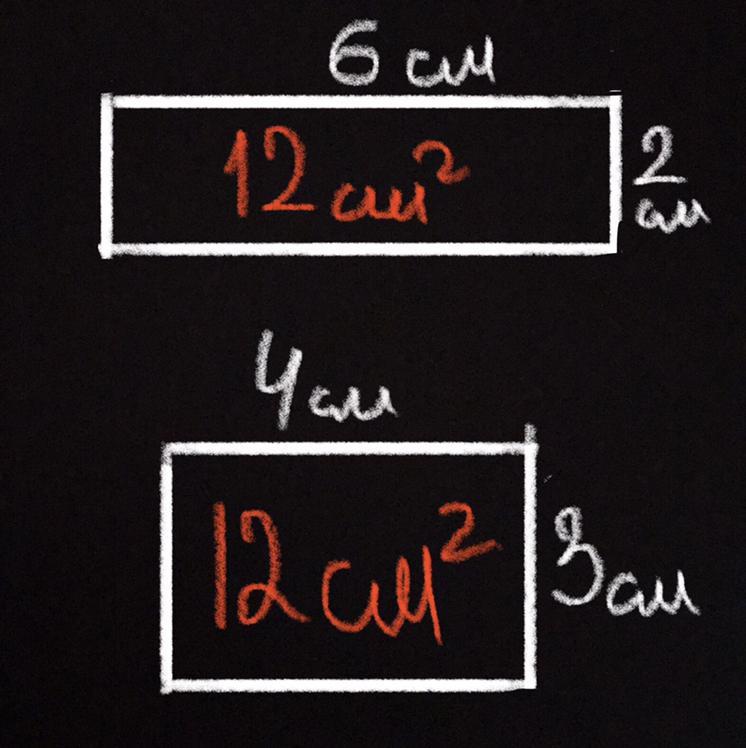 6 см
12 см²
2
см
4 см
12 см²
3 см